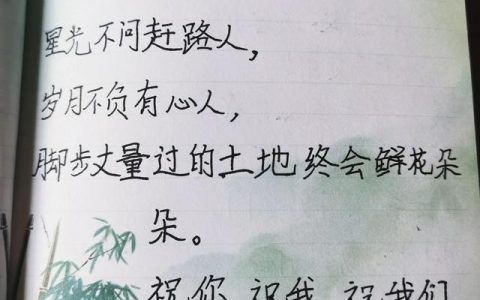 星光不问赶路人，
岁月不负有心人，
脚步丈量过的土地终会鲜花朵
朵。
祝你 祝我 祝我们